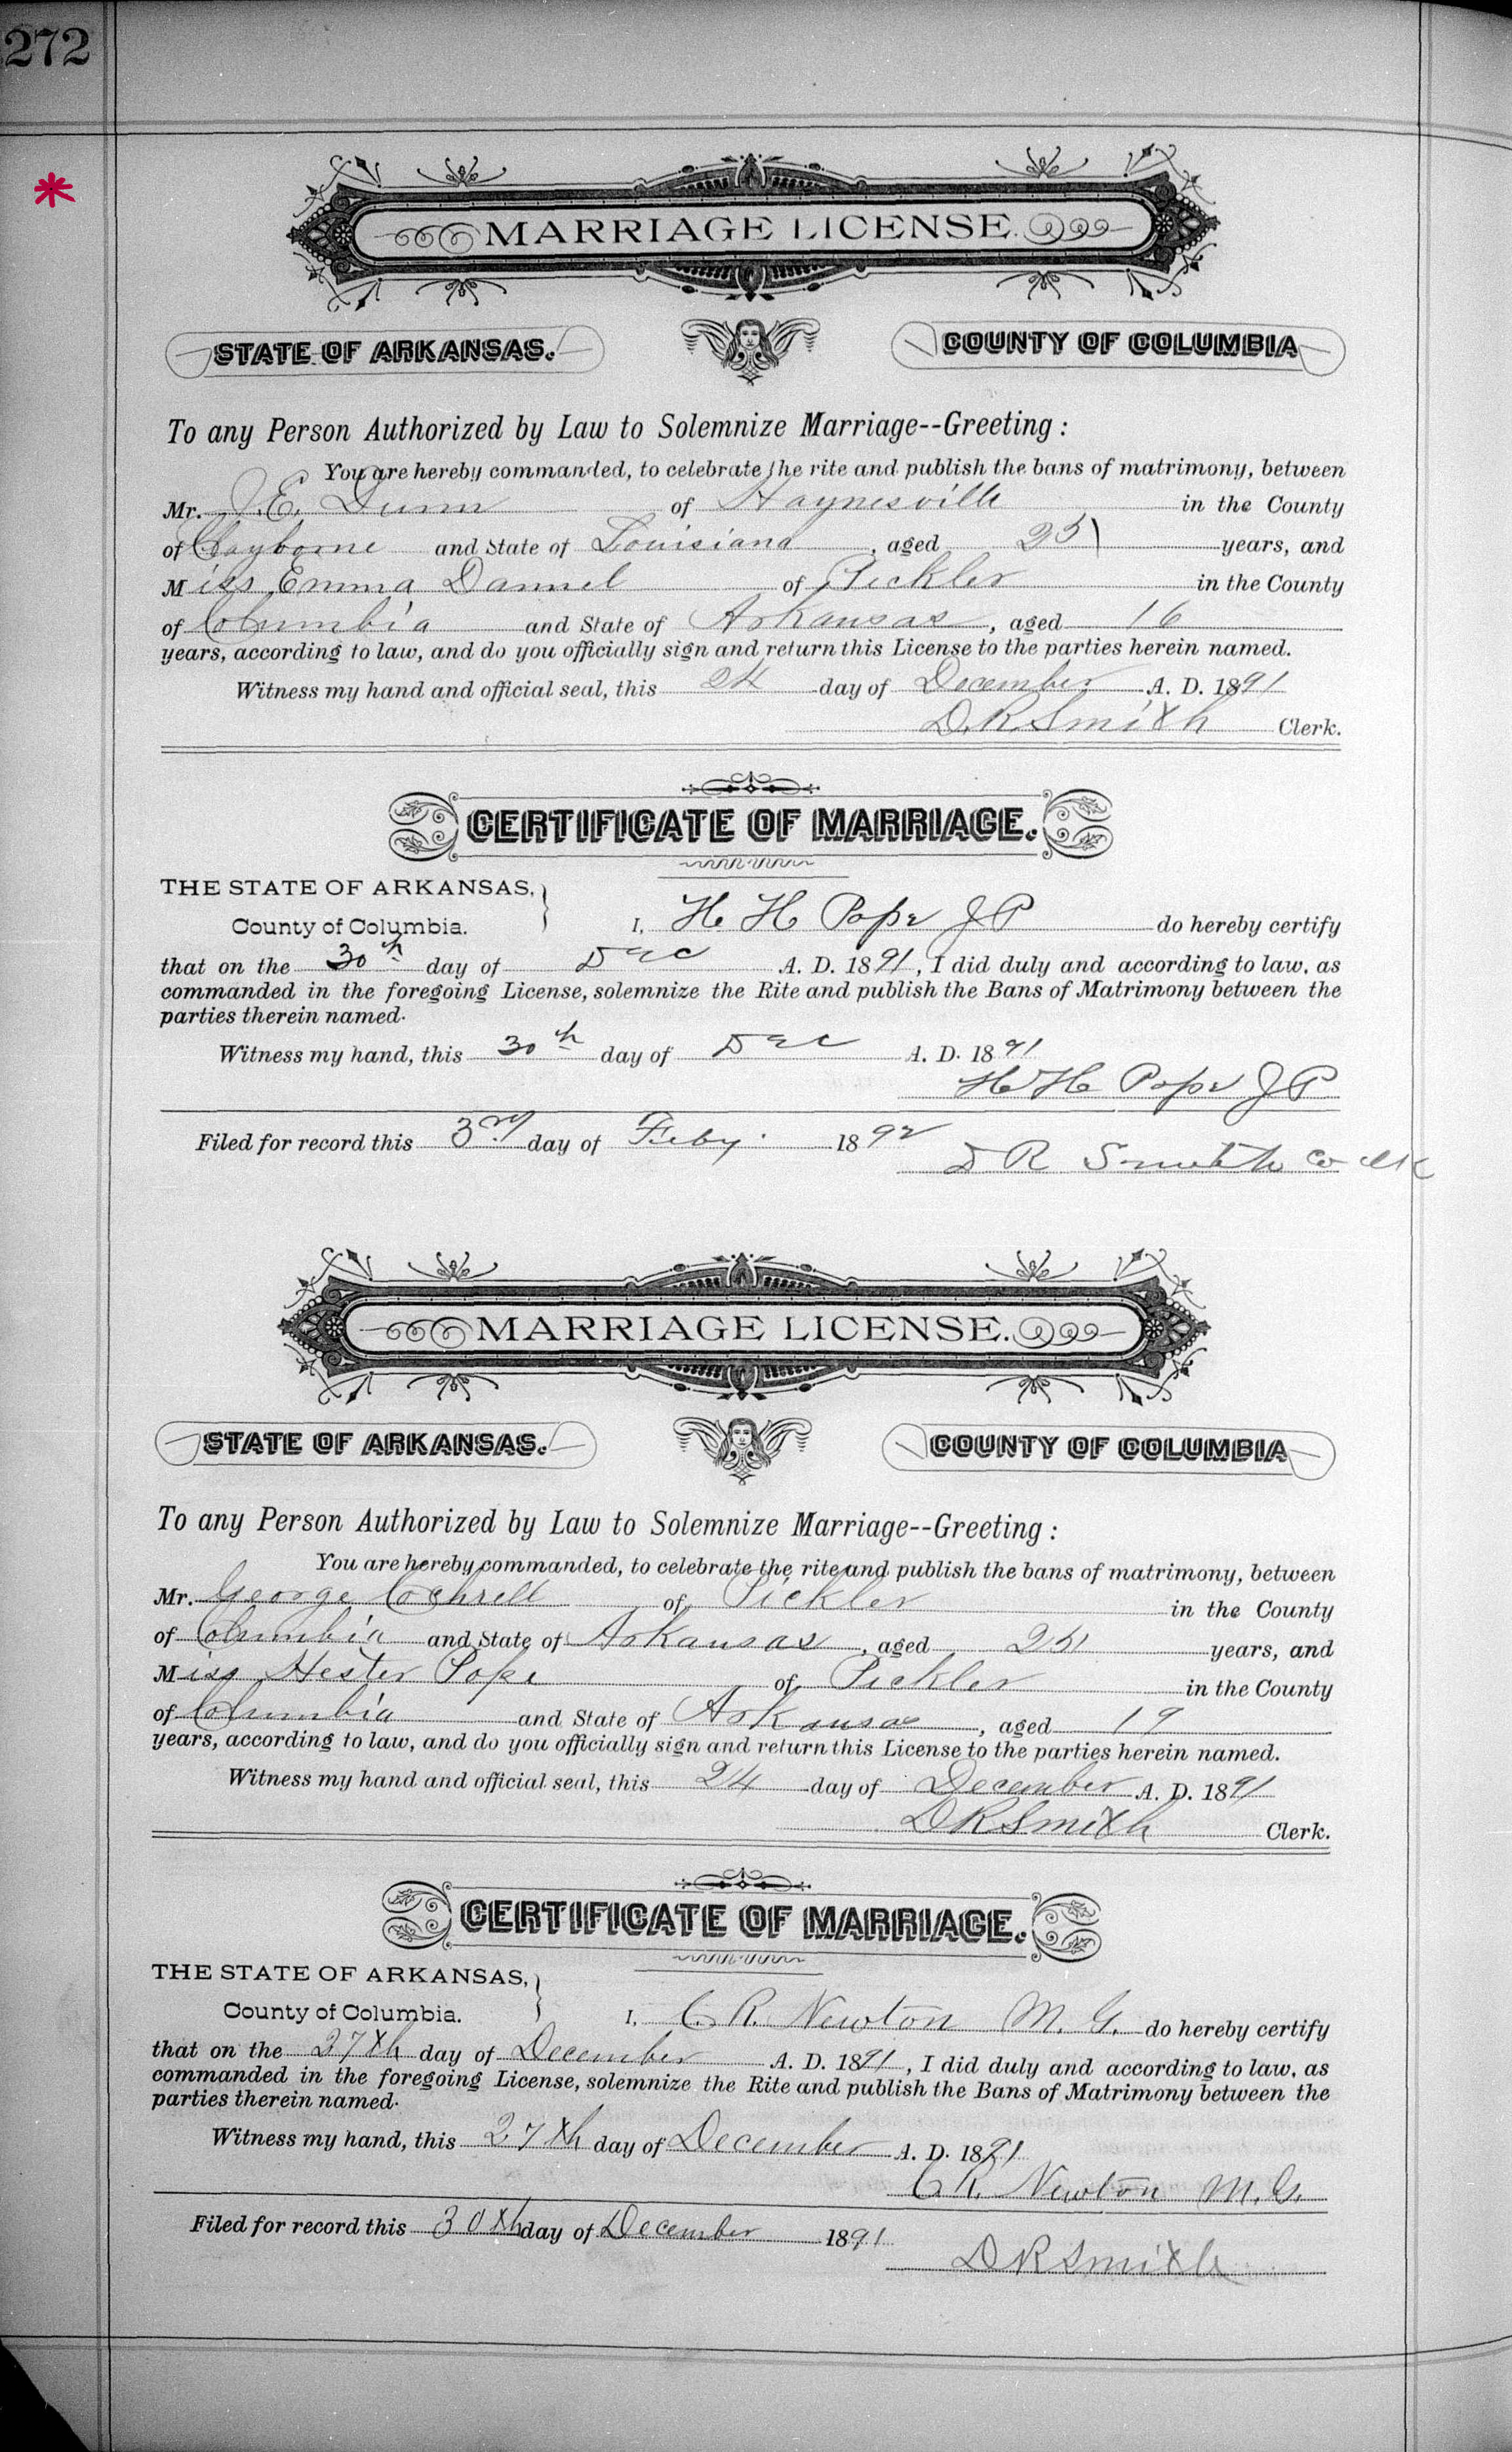 272
*
MARRIAGE LICENSE.
STATE OF ARKANSAS. COUNTY OF COLUMBIA
To any Person Authorized by Law to Solemnize Marriage--Greeting:
You are hereby commanded, to celebrate the rite and publish the bans of matrimony, between
Mr. J. E. Dunn of Haynesville in the County
of Clayborne and State of Louisiana, aged 25 years, and
Miss Emma Daniel of Pickler in the County
of Columbia and State of Arkansas, aged 16
years, according to law, and do you officially sign and return this License to the parties herein named.
Witness my hand and official seal, this 24 day of December A. D. 1891
D. R. Smith Clerk.
CERTIFICATE OF MARRIAGE.
THE STATE OF ARKANSAS,
County of Columbia. I, H H Pope J P do hereby certify
that on the 30th day of Dec A. D. 1891, I did duly and according to law, as
commanded in the foregoing License, solemnize the Rite and publish the Bans of Matrimony between the
parties therein named.
Witness my hand, this 30th day of Dec A. D. 1891
H H Pope J P
Filed for record this 3rd day of Feby. 1892
D R Smith Co Clk
MARRIAGE LICENSE.
STATE OF ARKANSAS. COUNTY OF COLUMBIA
To any Person Authorized by Law to Solemnize Marriage--Greeting:
You are hereby commanded, to celebrate the rite and publish the bans of matrimony, between
Mr. George Cochrell of Pickler in the County
of Columbia and State of Arkansas, aged years, and
Miss Hester Pope of Pickler in the County
of Columbia and State of Arkansas, aged 19
years, according to law, and do you officially sign and return this License to the parties herein named.
Witness my hand and official seal, this 24 day of December A. D. 1891
D R Smith Clerk.
CERTIFICATE OF MARRIAGE.
THE STATE OF ARKANSAS,
County of Columbia. I, C. R. Newton M. G. do hereby certify
that on the 27th day of December A. D. 1891, I did duly and according to law, as
commanded in the foregoing License, solemnize the Rite and publish the Bans of Matrimony between the
parties therein named.
Witness my hand, this 27th day of December A. D. 1891
C R. Newton M. G.
Filed for record this 30th day of December 1891
D R Smith